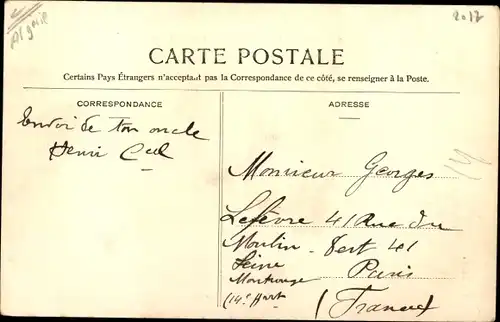 Algérie
2017
CARTE POSTALE
Certains Pays Étrangers n'acceptant pas la Correspondance de ce côté, se renseigner à la Poste.
CORRESPONDANCE
ADRESSE
Envoi de ton oncle
Henri
Monsieur Georges
Lefèvre 41 Rue du
Moulin-Vert 41
Seine Paris
Montrouge
(14e (France)
14